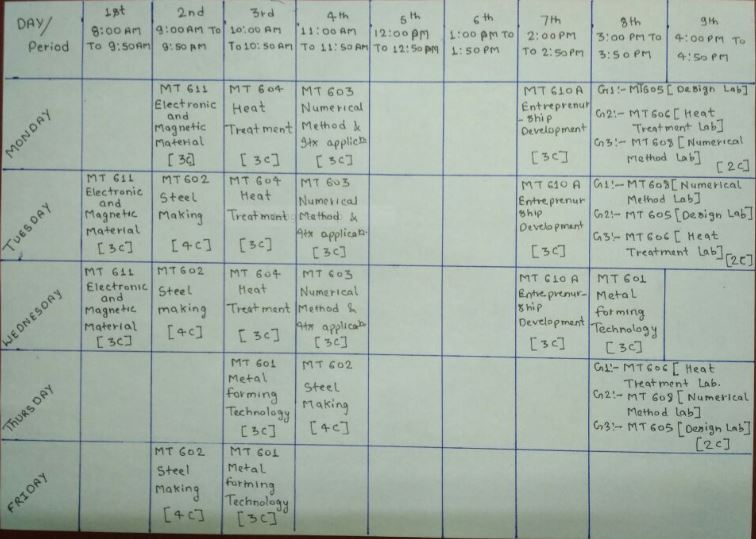 DAY/
Period
1st
8:00 AM
TO 9:50AM
2nd
9:00 AM TO
9:50 AM
3rd
10:00 AM
To 10:50 AM
4th
11:00 AM
To 11:50 AM
5th
12:00 PM
To 12:50 PM
6th
1:00 PM TO
1:50 PM
7th
2:00 PM
To 2:50 PM
8th
3:00 PM TO
3:50 PM
9th
4:00 PM TO
4:50 PM
MONDAY
MT 611
Electronic
and
Magnetic
Material
[3C]
MT 604
Heat
Treatment
[3C]
MT 603
Numerical
Method &
Itx applicatn
[3C]
MT 610A
Entreprenur
-Ship
Development
[3C]
G1:- MT605 [Design Lab]
G2:- MT606 [Heat
Treatment Lab]
G3:- MT608 [Numerical
Method Lab]
[2C]
TUESDAY
MT 611
Electronic
and
Magnetic
Material
[3C]
MT602
Steel
Making
[4C]
MT 604
Heat
Treatment
[3C]
MT 603
Numerical
Method &
Itx applicatn
[3C]
MT 610 A
Entreprenur
Ship
Development
[3C]
G1:- MT608 [Numerical
Method Lab]
G2:- MT 605 [Design Lab]
G3:- MT606 [Heat
Treatment Lab]
[2C]
WEDNESDAY
MT 611
Electronic
and
Magnetic
Material
[3C]
MT602
Steel
making
[4C]
MT 604
Heat
Treatment
[3C]
MT 603
Numerical
Method &
Itx applicatn
[3C]
MT 610 A
Entreprenur-
Ship
Development
[3C]
MT 601
Metal
forming
Technology
[3C]
THURSDAY
MT 601
Metal
forming
Technology
[3C]
MT 602
Steel
Making
[4C]
G1:- MT606 [Heat
Treatment Lab.
G2:- MT 608 [Numerical
Method Lab]
G3:- MT605 [Design Lab]
[2C]
FRIDAY
MT 602
Steel
Making
[4C]
MT 601
Metal
forming
Technology
[3C]